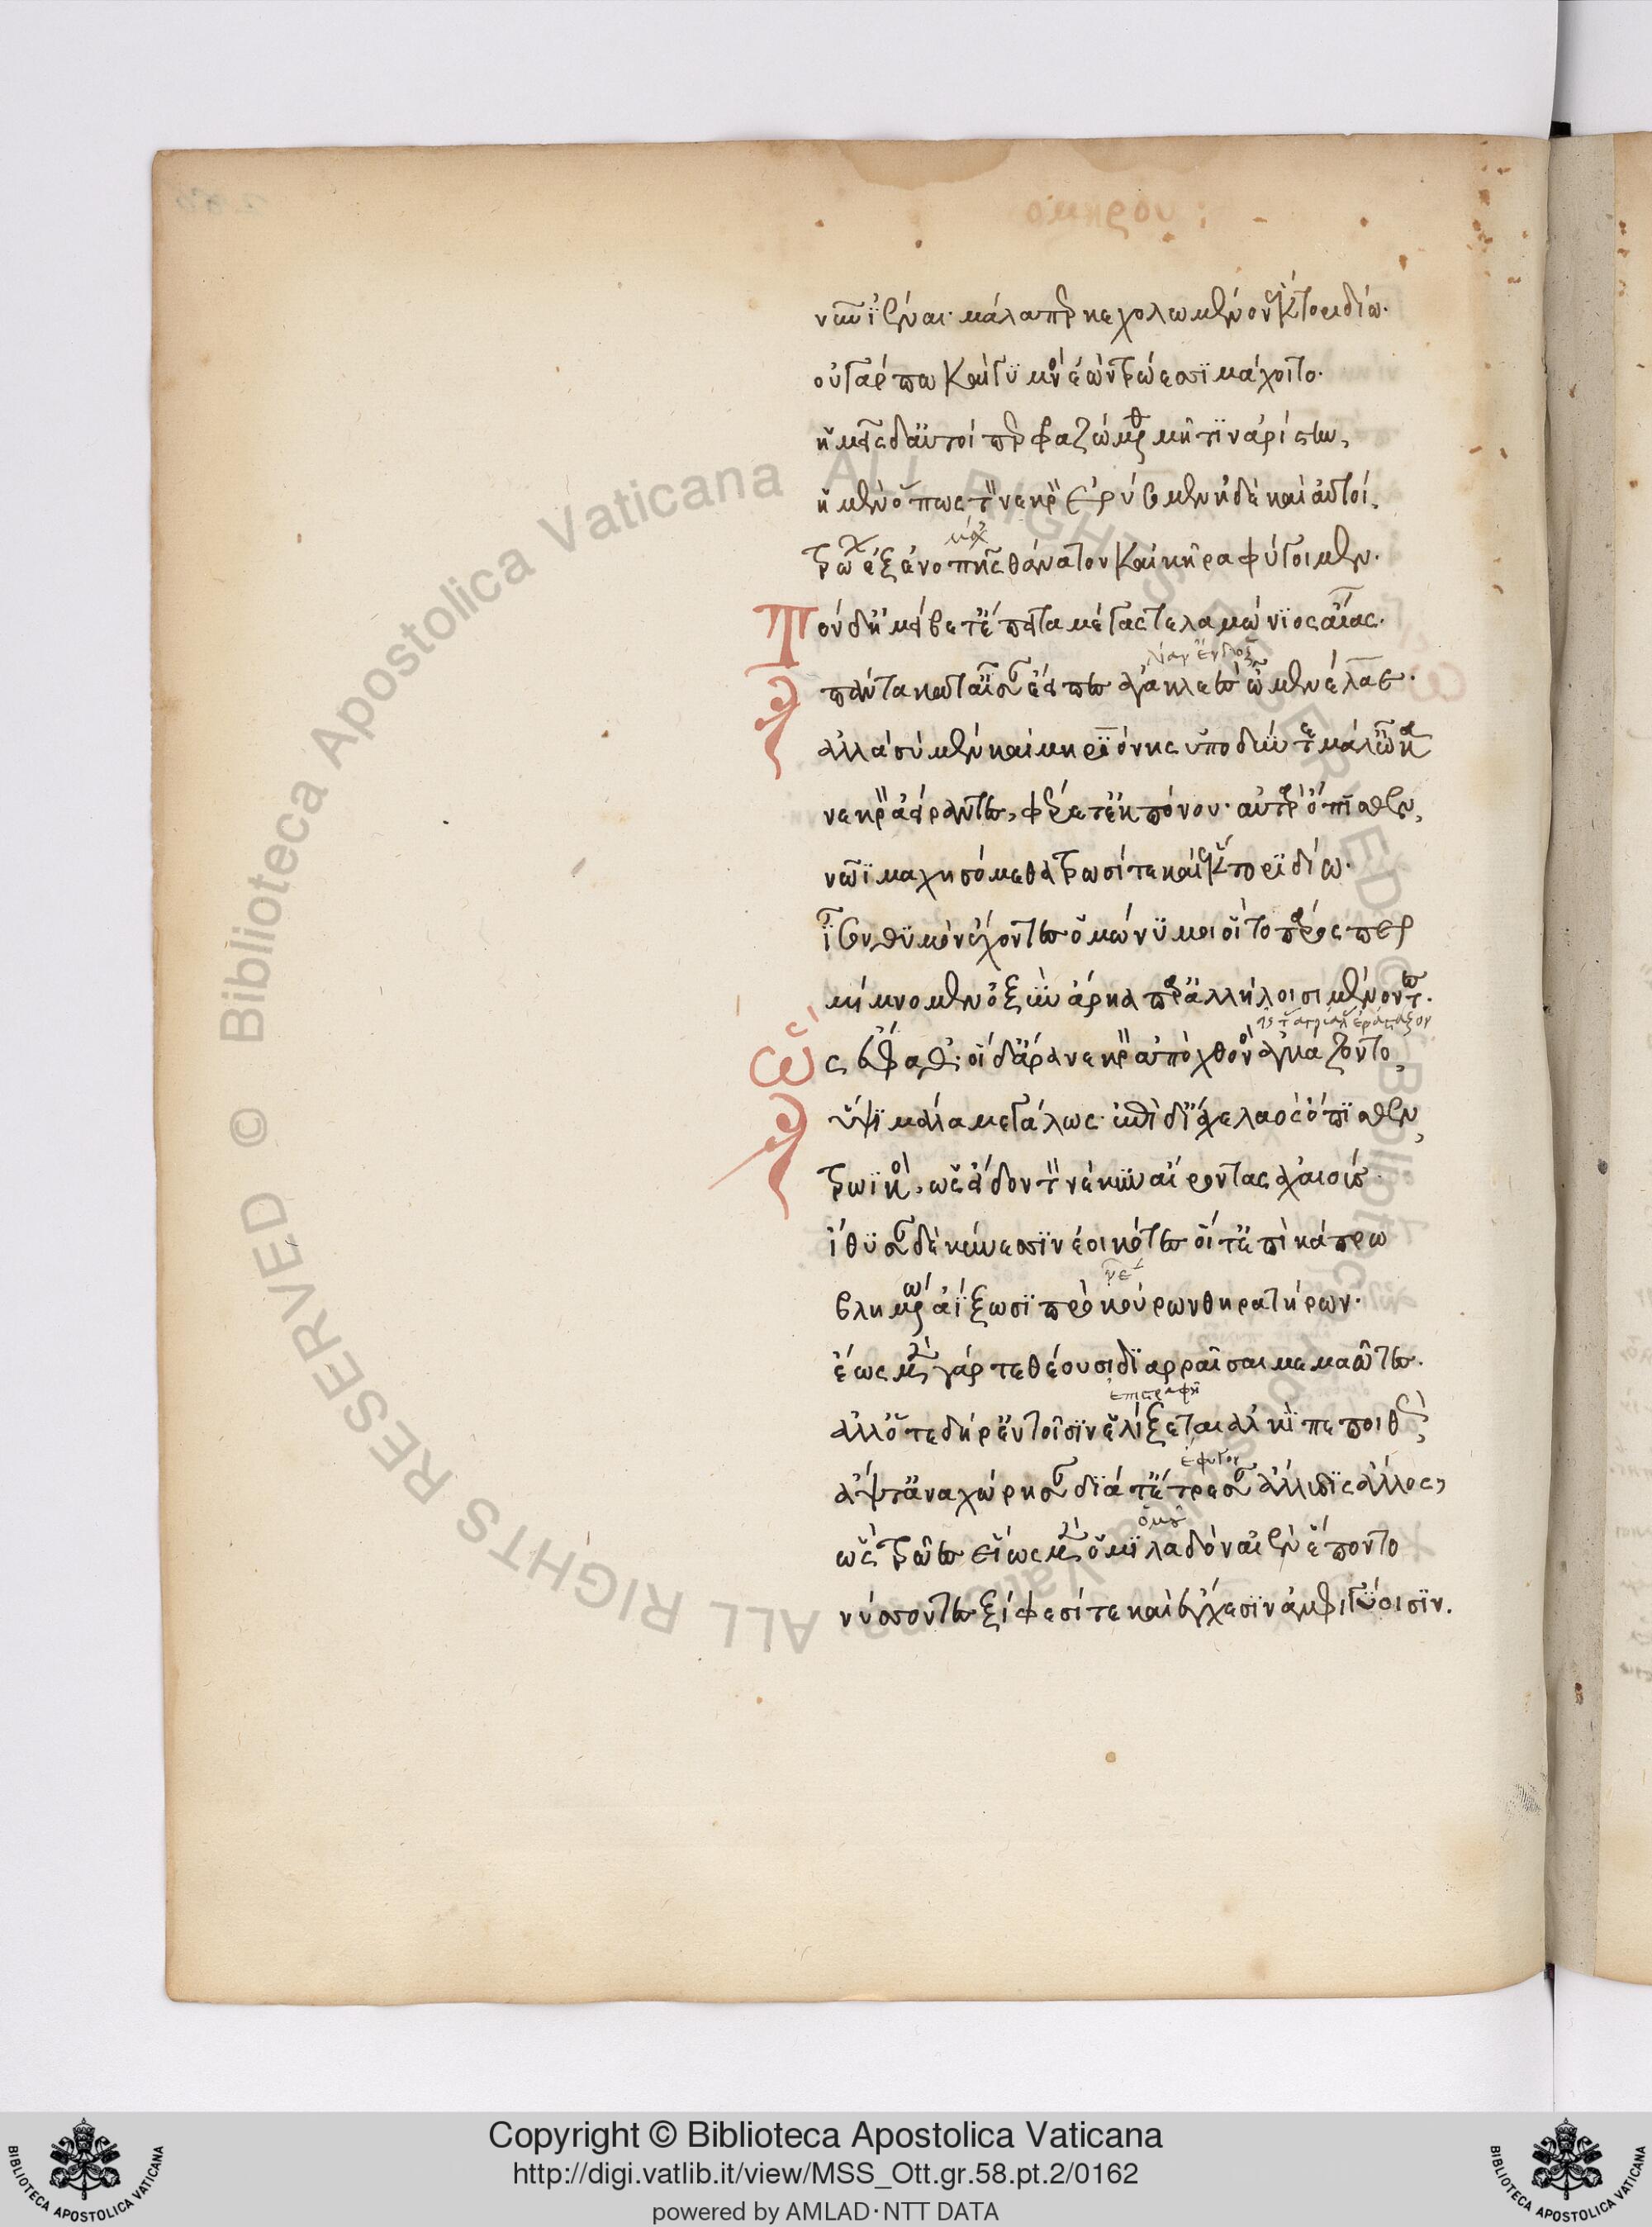 ὁμήρου :
νῦν ἰέναι· μάλα περ κεχολωμένον ἕκτορι δίω·
οὐ γάρ πω κεν γυμνὸς ἐὼν τρώεσσι μάχοιτο·
ἡμεῖς δ' αὐτοί περ φραζώμεθα μῆτιν ἀρίστην,
ἠμὲν ὅπως τὸν νεκρὸν ἐρύσομεν ἠδὲ καὶ αὐτοί,
τρώων ἐξ ἐνοπῆς θάνατον καὶ κῆρα φύγοιμεν·
Τὸν δ' ἠμείβετ' ἔπειτα μέγας τελαμώνιος αἴας·
λίαν ἔνδοξε
πάντα κατ' αἶσαν ἔειπες ἀγακλεὲς ὦ μενέλαε·
ἀλλὰ σὺ μὲν καὶ μηριόνης ὑποδύντε μάλ' ὦκα
νεκρὸν ἀείραντες, φέρετ' ἐκ πόνου· αὐτὰρ ὄπισθεν,
νῶϊ μαχησόμεθα τρωσί τε καὶ ἕκτορι δίω·
ἶσον θυμὸν ἔχοντες ὁμώνυμοι οἳ τὸ πάρος περ
μίμνομεν ὀξὺν ἄρηα παρ' ἀλλήλοισι μένοντες·
Ὣς ἔφαθ'· οἱ δ' ἄρα νεκρὸν ἀπὸ χθονὸς ἀγκάζοντο,
ὕψι μάλα μεγάλως· ἐπὶ δ' ἴαχε λαὸς ὄπισθεν,
τρωϊκός, ὡς εἴδοντο νέκυν αἴροντας ἀχαιούς·
ἴθυσαν δὲ κύνεσσιν ἐοικότες οἵ τ' ἐπὶ κάπρω
βλημένω ἀΐξωσι πρὸ κούρων θηρατήρων·
ἕως μὲν γάρ τε θέουσι διαρραῖσαι μεμαῶτες·
ἐπιστραφῆ
ἀλλ' ὅτε δή ῥ' ἐν τοῖσιν ἑλίξεται ἀλκὶ πεποιθώς,
ἔφυγον
ἄψ τ' ἀναχώρησαν διά τ' ἔτρεσαν ἄλλυδις ἄλλος,
ὁμοῦ
ὣς τρῶες εἵως μὲν ὁμιλαδὸν αἰὲν ἕποντο
νύσσοντες ξίφεσί τε καὶ ἔγχεσιν ἀμφιγύοισιν.
Copyright © Biblioteca Apostolica Vaticana
http://digi.vatlib.it/view/MSS_Ott.gr.58.pt.2/0162
powered by AMLAD·NTT DATA